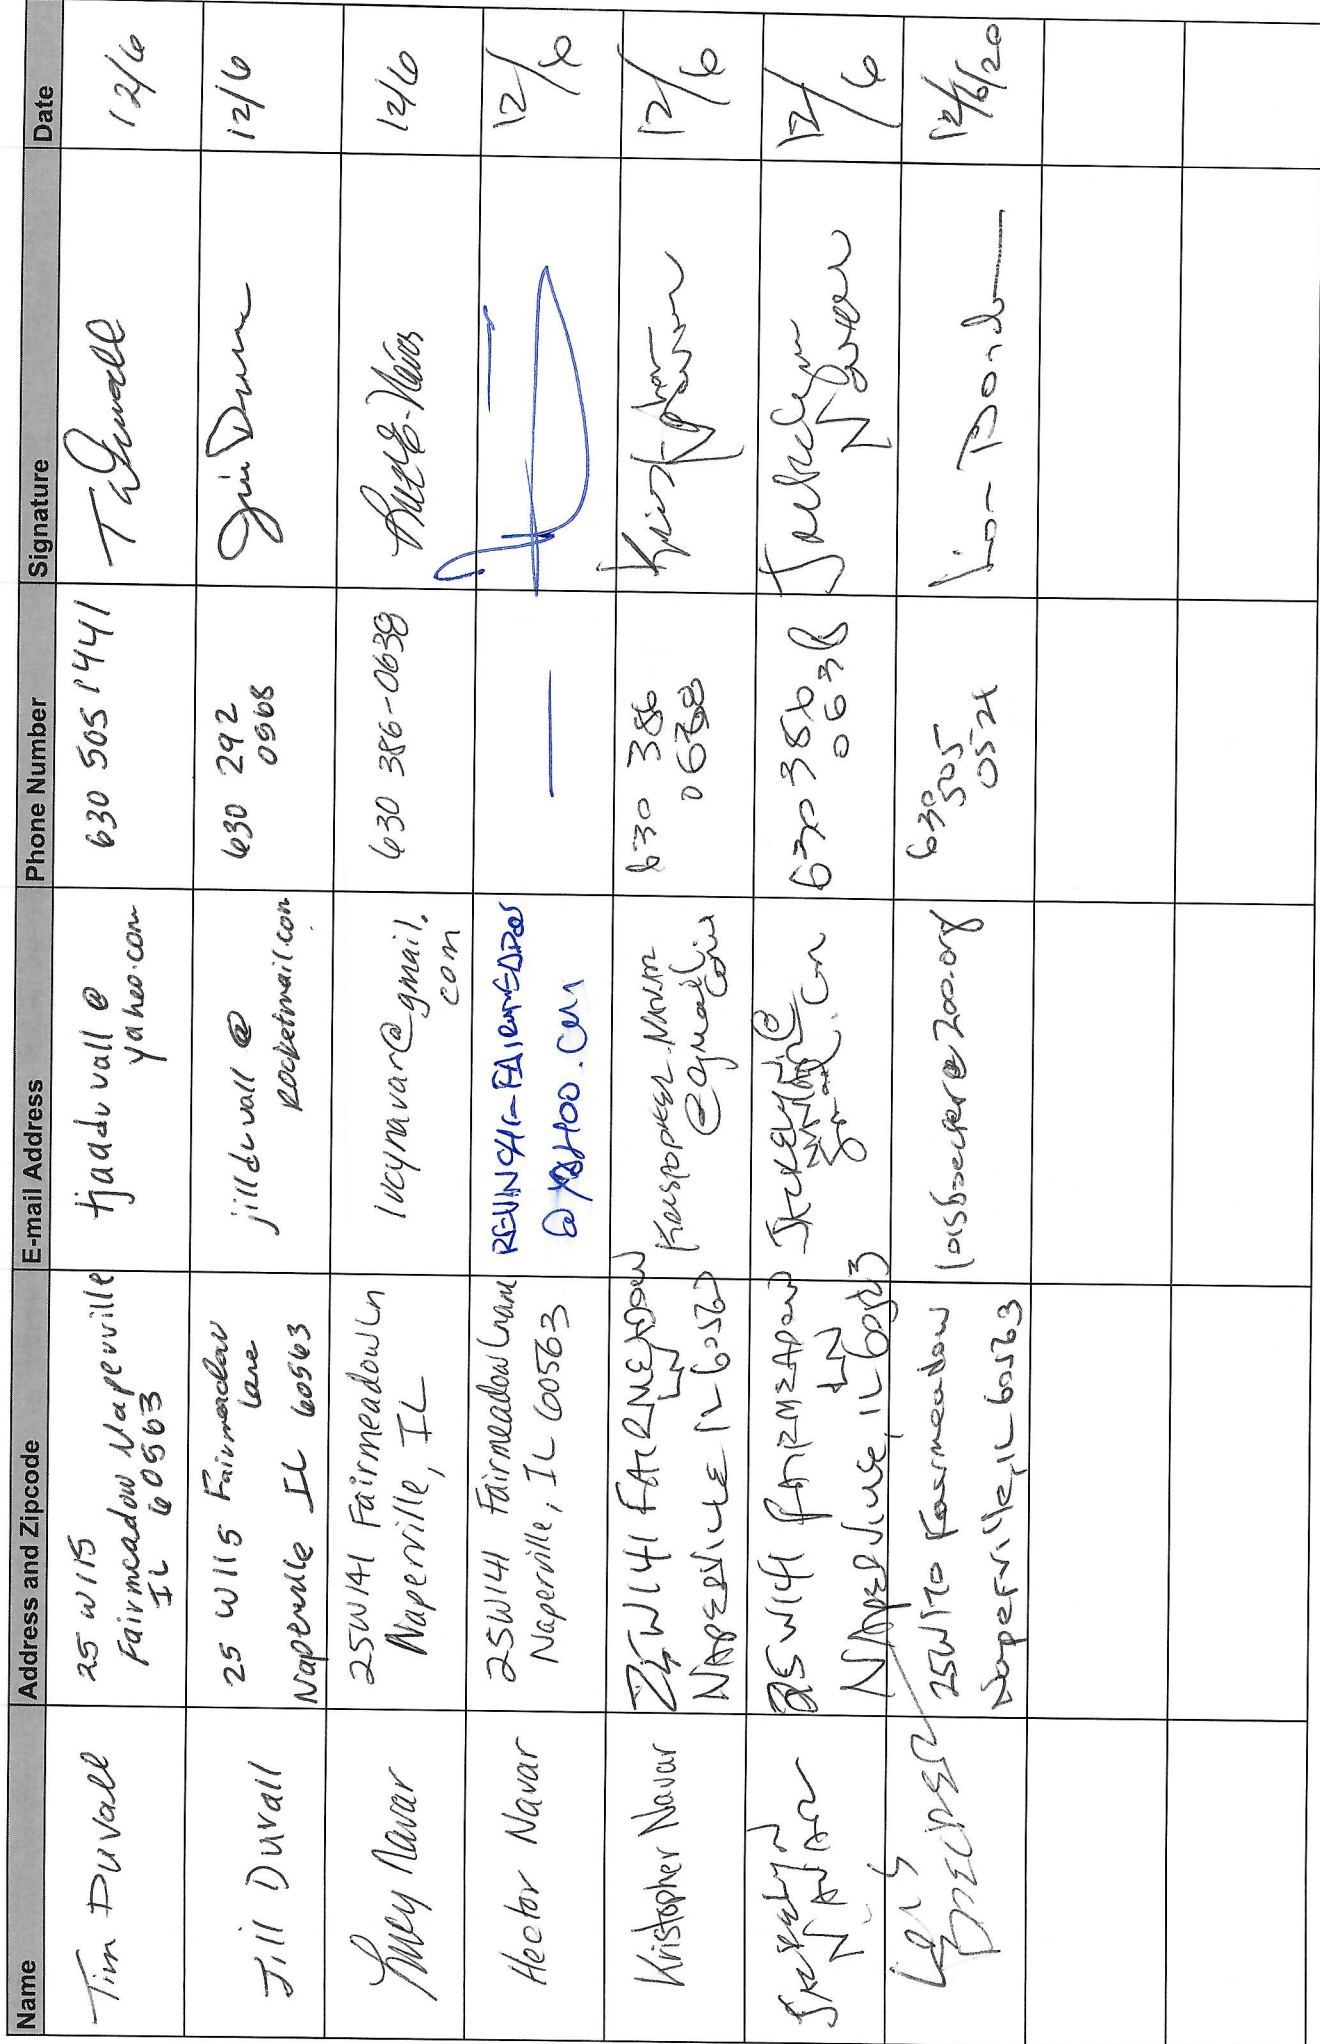 Name Address and Zipcode E-mail Address Phone Number Signature Date
Tim Duvall 25 W115 Fairmeadow Naperville IL 60563 tjaaduvall@yahoo.com 630 505 1441 12/6
Jill Duvall 25 W115 Fairmeadow Lane Naperville IL 60563 jillduvall@rocketmail.com 630 292 0568 Jill Duvall 12/6
Lucy Navar 25W141 Fairmeadow Ln Naperville, IL lucynavar@gmail.com 630 386-0638 12/6
Hector Navar 25W141 Fairmeadow Lane Naperville, IL 60563 @YAHOO.COM — 12/6
Kristopher Navar 25W141 FAIRMEADOW LN NAPERVILLE IL 60563 KRISTOPHER.NAVAR@gmail.com 630 386 0638 12/6
JACKELYN NAVAR 25W141 FAIRMEADOW LN NAPERVILLE, IL 60563 630 386 0638 Jackelyn Navar 12/6
Lois BECKER 25W170 Fairmeadow Naperville, IL 60563 loisbecker@200.org 630 505 0524 12/6/20